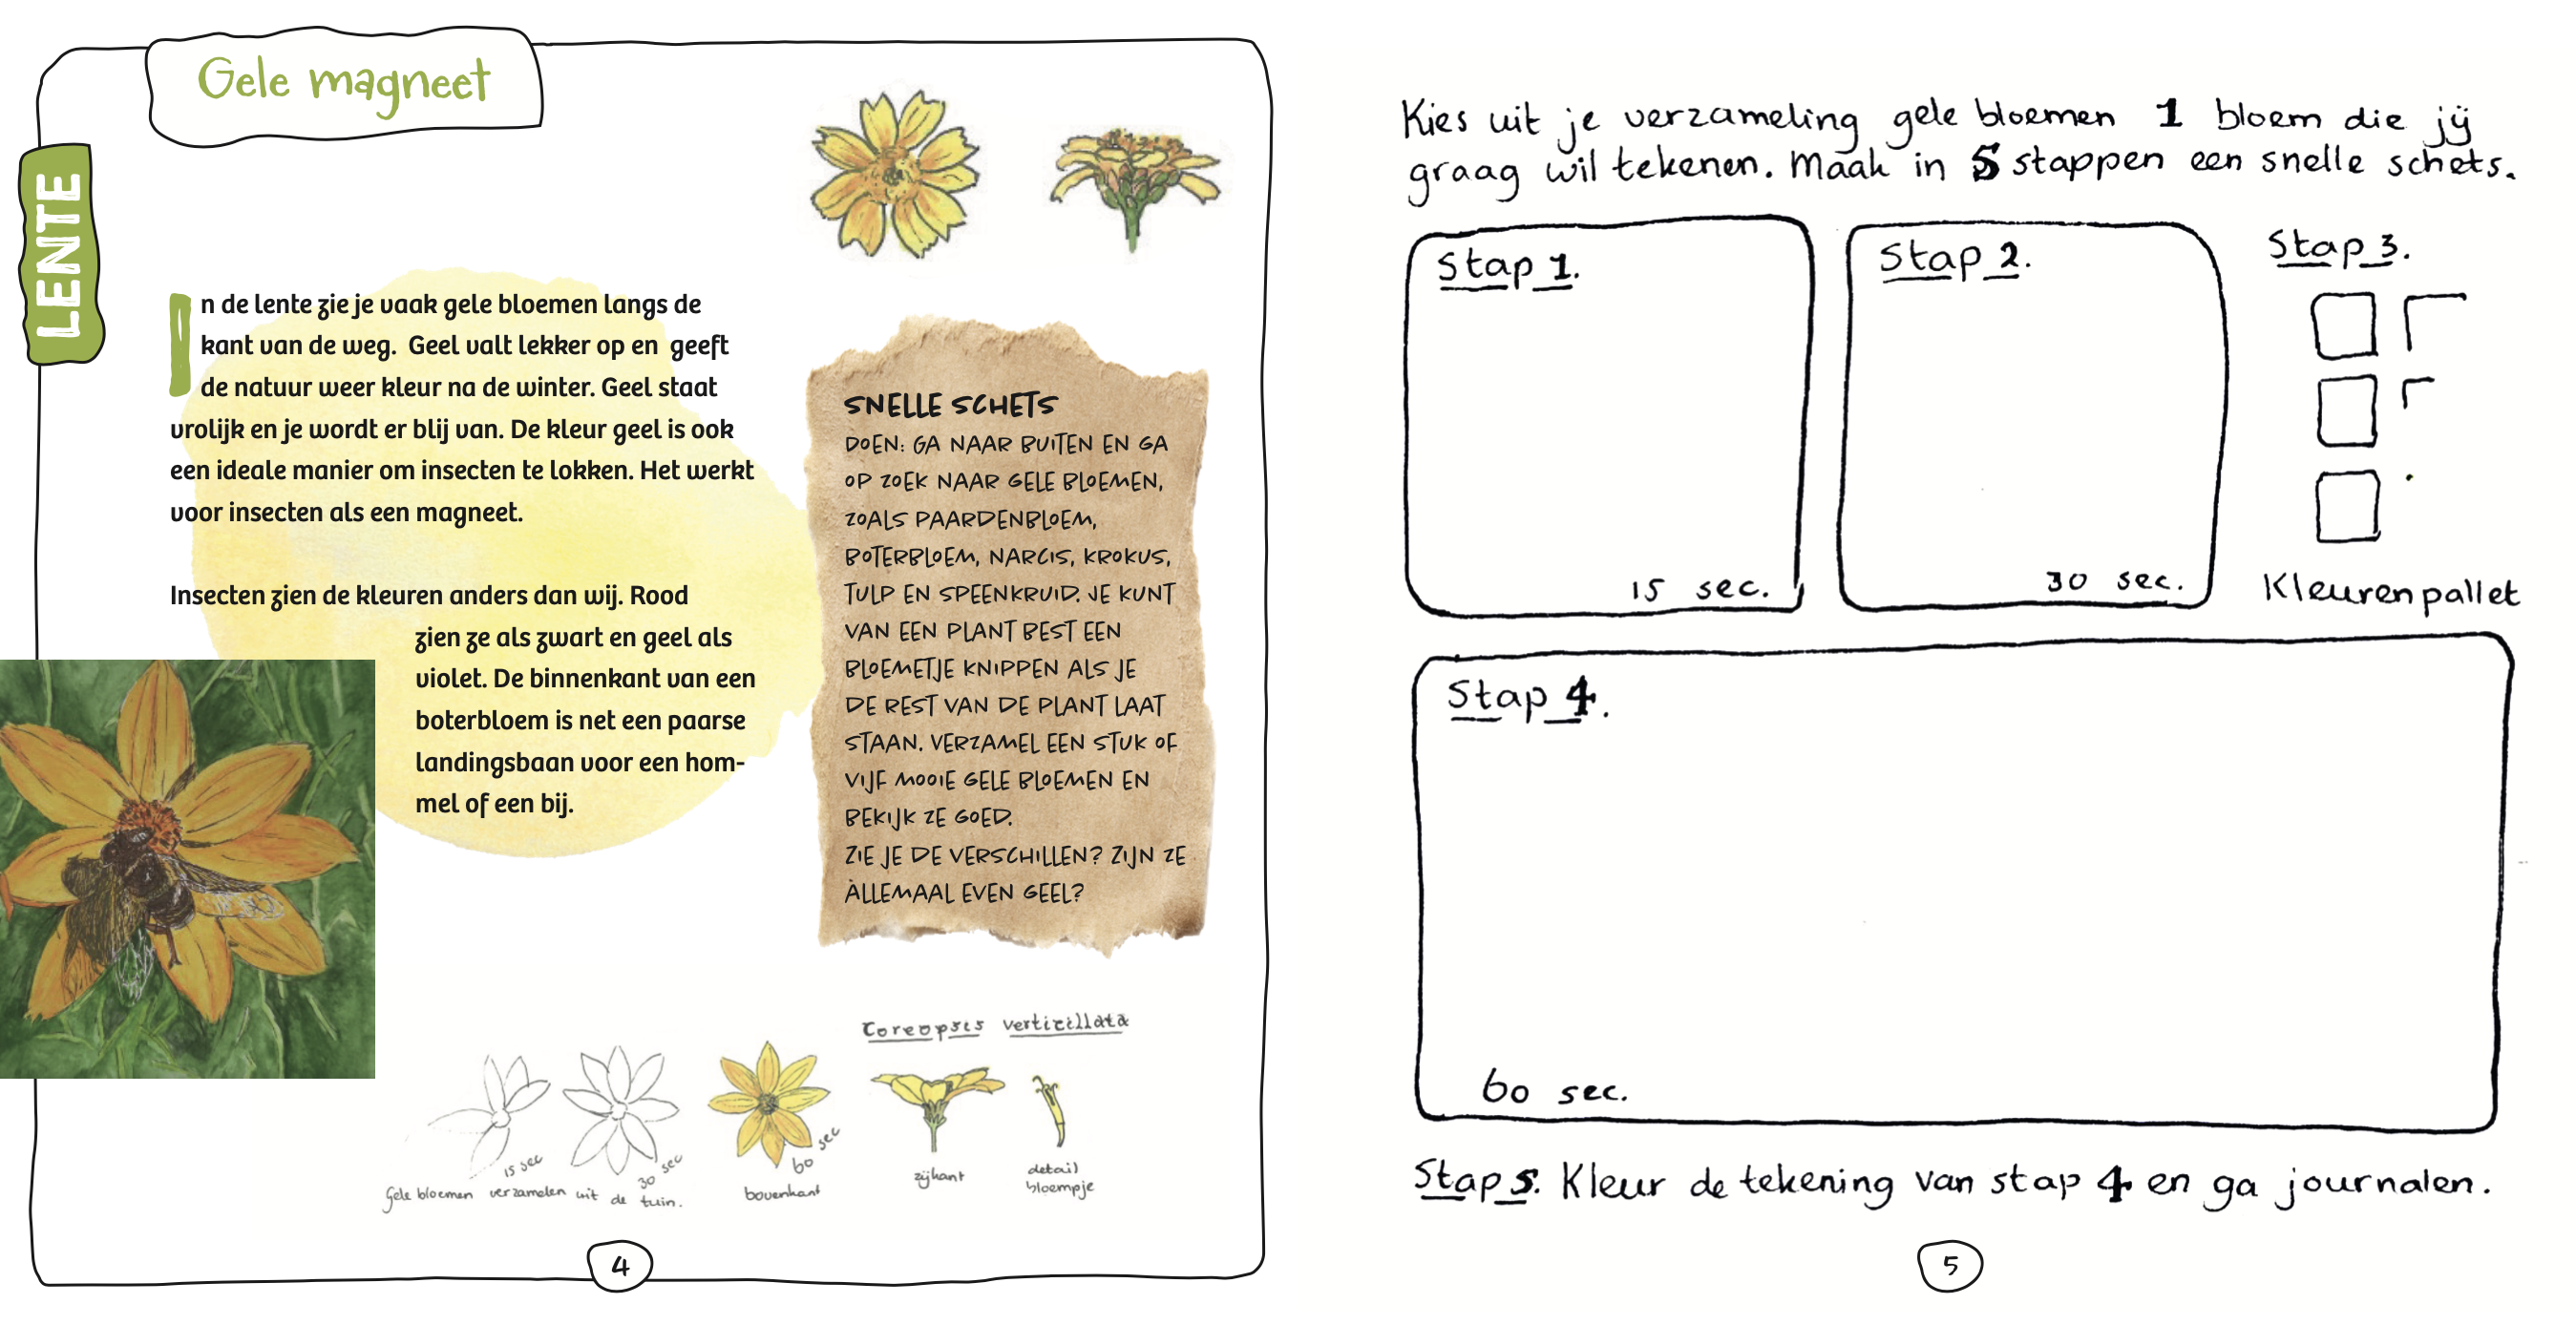 Gele magneet
LENTE
In de lente zie je vaak gele bloemen langs de
kant van de weg. Geel valt lekker op en geeft
de natuur weer kleur na de winter. Geel staat
vrolijk en je wordt er blij van. De kleur geel is ook
een ideale manier om insecten te lokken. Het werkt
voor insecten als een magneet.
Insecten zien de kleuren anders dan wij. Rood
zien ze als zwart en geel als
violet. De binnenkant van een
boterbloem is net een paarse
landingsbaan voor een hom-
mel of een bij.
SNELLE SCHETS
DOEN: GA NAAR BUITEN EN GA
OP ZOEK NAAR GELE BLOEMEN,
ZOALS PAARDENBLOEM,
BOTERBLOEM, NARCIS, KROKUS,
TULP EN SPEENKRUID. JE KUNT
VAN EEN PLANT BEST EEN
BLOEMETJE KNIPPEN ALS JE
DE REST VAN DE PLANT LAAT
STAAN. VERZAMEL EEN STUK OF
VIJF MOOIE GELE BLOEMEN EN
BEKIJK ZE GOED.
ZIE JE DE VERSCHILLEN? ZIJN ZE
ÀLLEMAAL EVEN GEEL?
Coreopsis verticillata
15 sec
30 sec
60 sec
Gele bloemen verzamelen uit de tuin.
bovenkant
zijkant
detail
bloempje
4
Kies uit je verzameling gele bloemen 1 bloem die jij
graag wil tekenen. Maak in 5 stappen een snelle schets.
Stap 1.
15 sec.
Stap 2.
30 sec.
Stap 3.
Kleurenpallet
Stap 4.
60 sec.
Stap 5. Kleur de tekening van stap 4 en ga journalen.
5